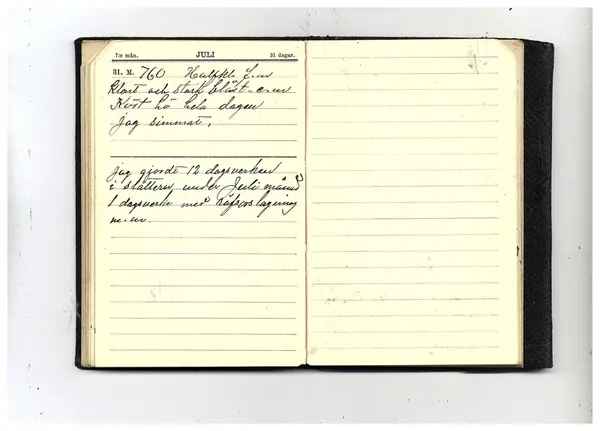 7:e mån. JULI 31 dagar.
31. M. 760 Halfkl. f.m
klart och stark blåst. e.m
Kört hö hela dagen
jag simmat,
jag gjordt 12 dagsverken
i slåttern under Juli månad
1 dagsverk med räfsorslagning
m.m.